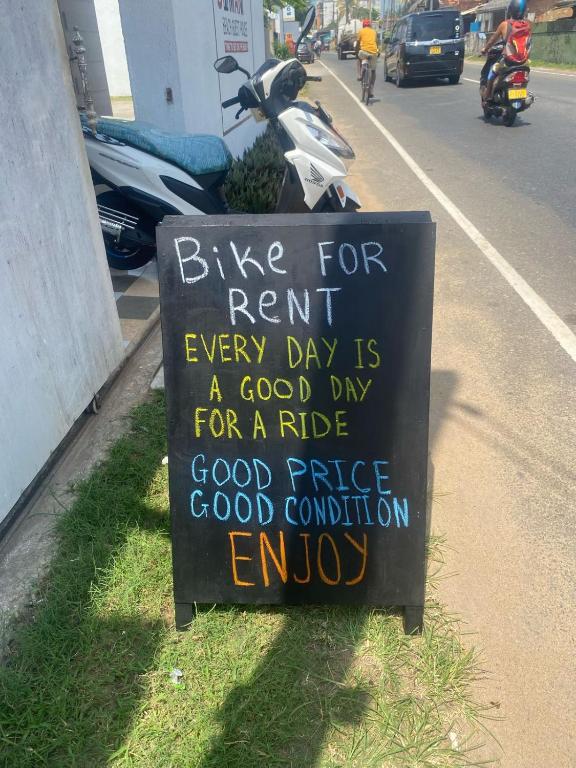 Bike FOR
ReNT
EVERY DAY IS
A GOOD DAY
FOR A RIDE
GOOD PRICE
GOOD CONDITION
ENJOY
HONDA